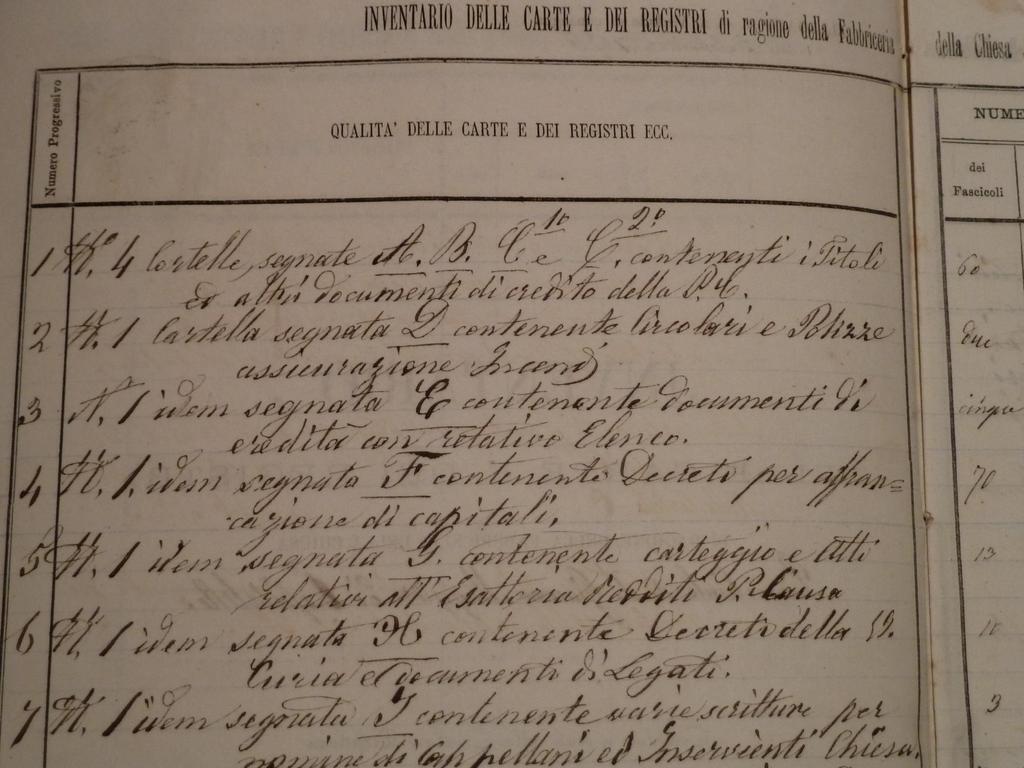 INVENTARIO DELLE CARTE E DEI REGISTRI di ragione della Fabbriceria della Chiesa
Numero Progressivo
QUALITA' DELLE CARTE E DEI REGISTRI ECC.
NUME
dei Fascicoli
1 N.° 4 Cartelle, segnate A. B. C 1° e C. 2° contenenti i Titoli 60
ed altri documenti di credito della P. C.
2 N. 1 Cartella segnata D contenente Circolari e Polizze due
assicurazione Incendj
3 N. 1 idem segnata E contenente documenti di cinque
eredità con relativo Elenco.
4 N. 1. idem segnata F contenente Decreti per affran= 70
cazione di capitali,
5 N. 1 idem segnata G. contenente carteggio e Atti 13
relativi all' Esattoria Redditi P. Causa
6 N. 1 idem segnata H contenente Decreti della 10
Curia e documenti di Legati.
7 N. 1 idem segnata I contenente varie scritture per 3
nomine di Cappellani ed Inservienti Chiesa.